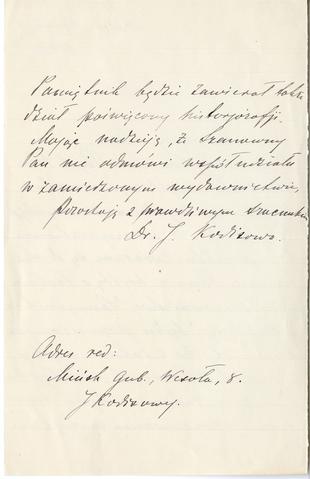 Pamiętnik będzie zawierał także
dział poświęcony historjozofji.
Mając nadzieję, że Szanowny
Pan nie odmówi współudziału
w zamierzonym wydawnictwie,
Pozostaję z prawdziwym szacunkiem
Dr. J. Kodisowa.
Adres red:
Mińsk gub., Wesoła, 8.
J Kodisowej.